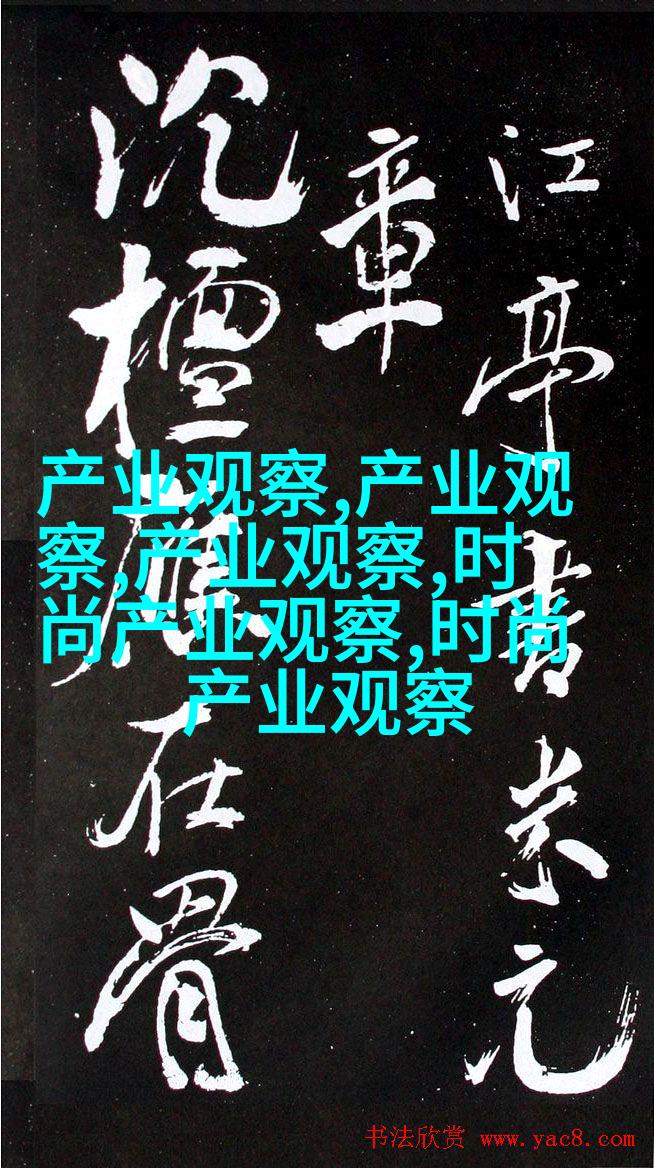 江亭書米元
章
沉檀在骨
产业观察,产业观
察,产业观察,时
尚产业观察,时尚
产业观察
书法欣赏 www.yac8.com